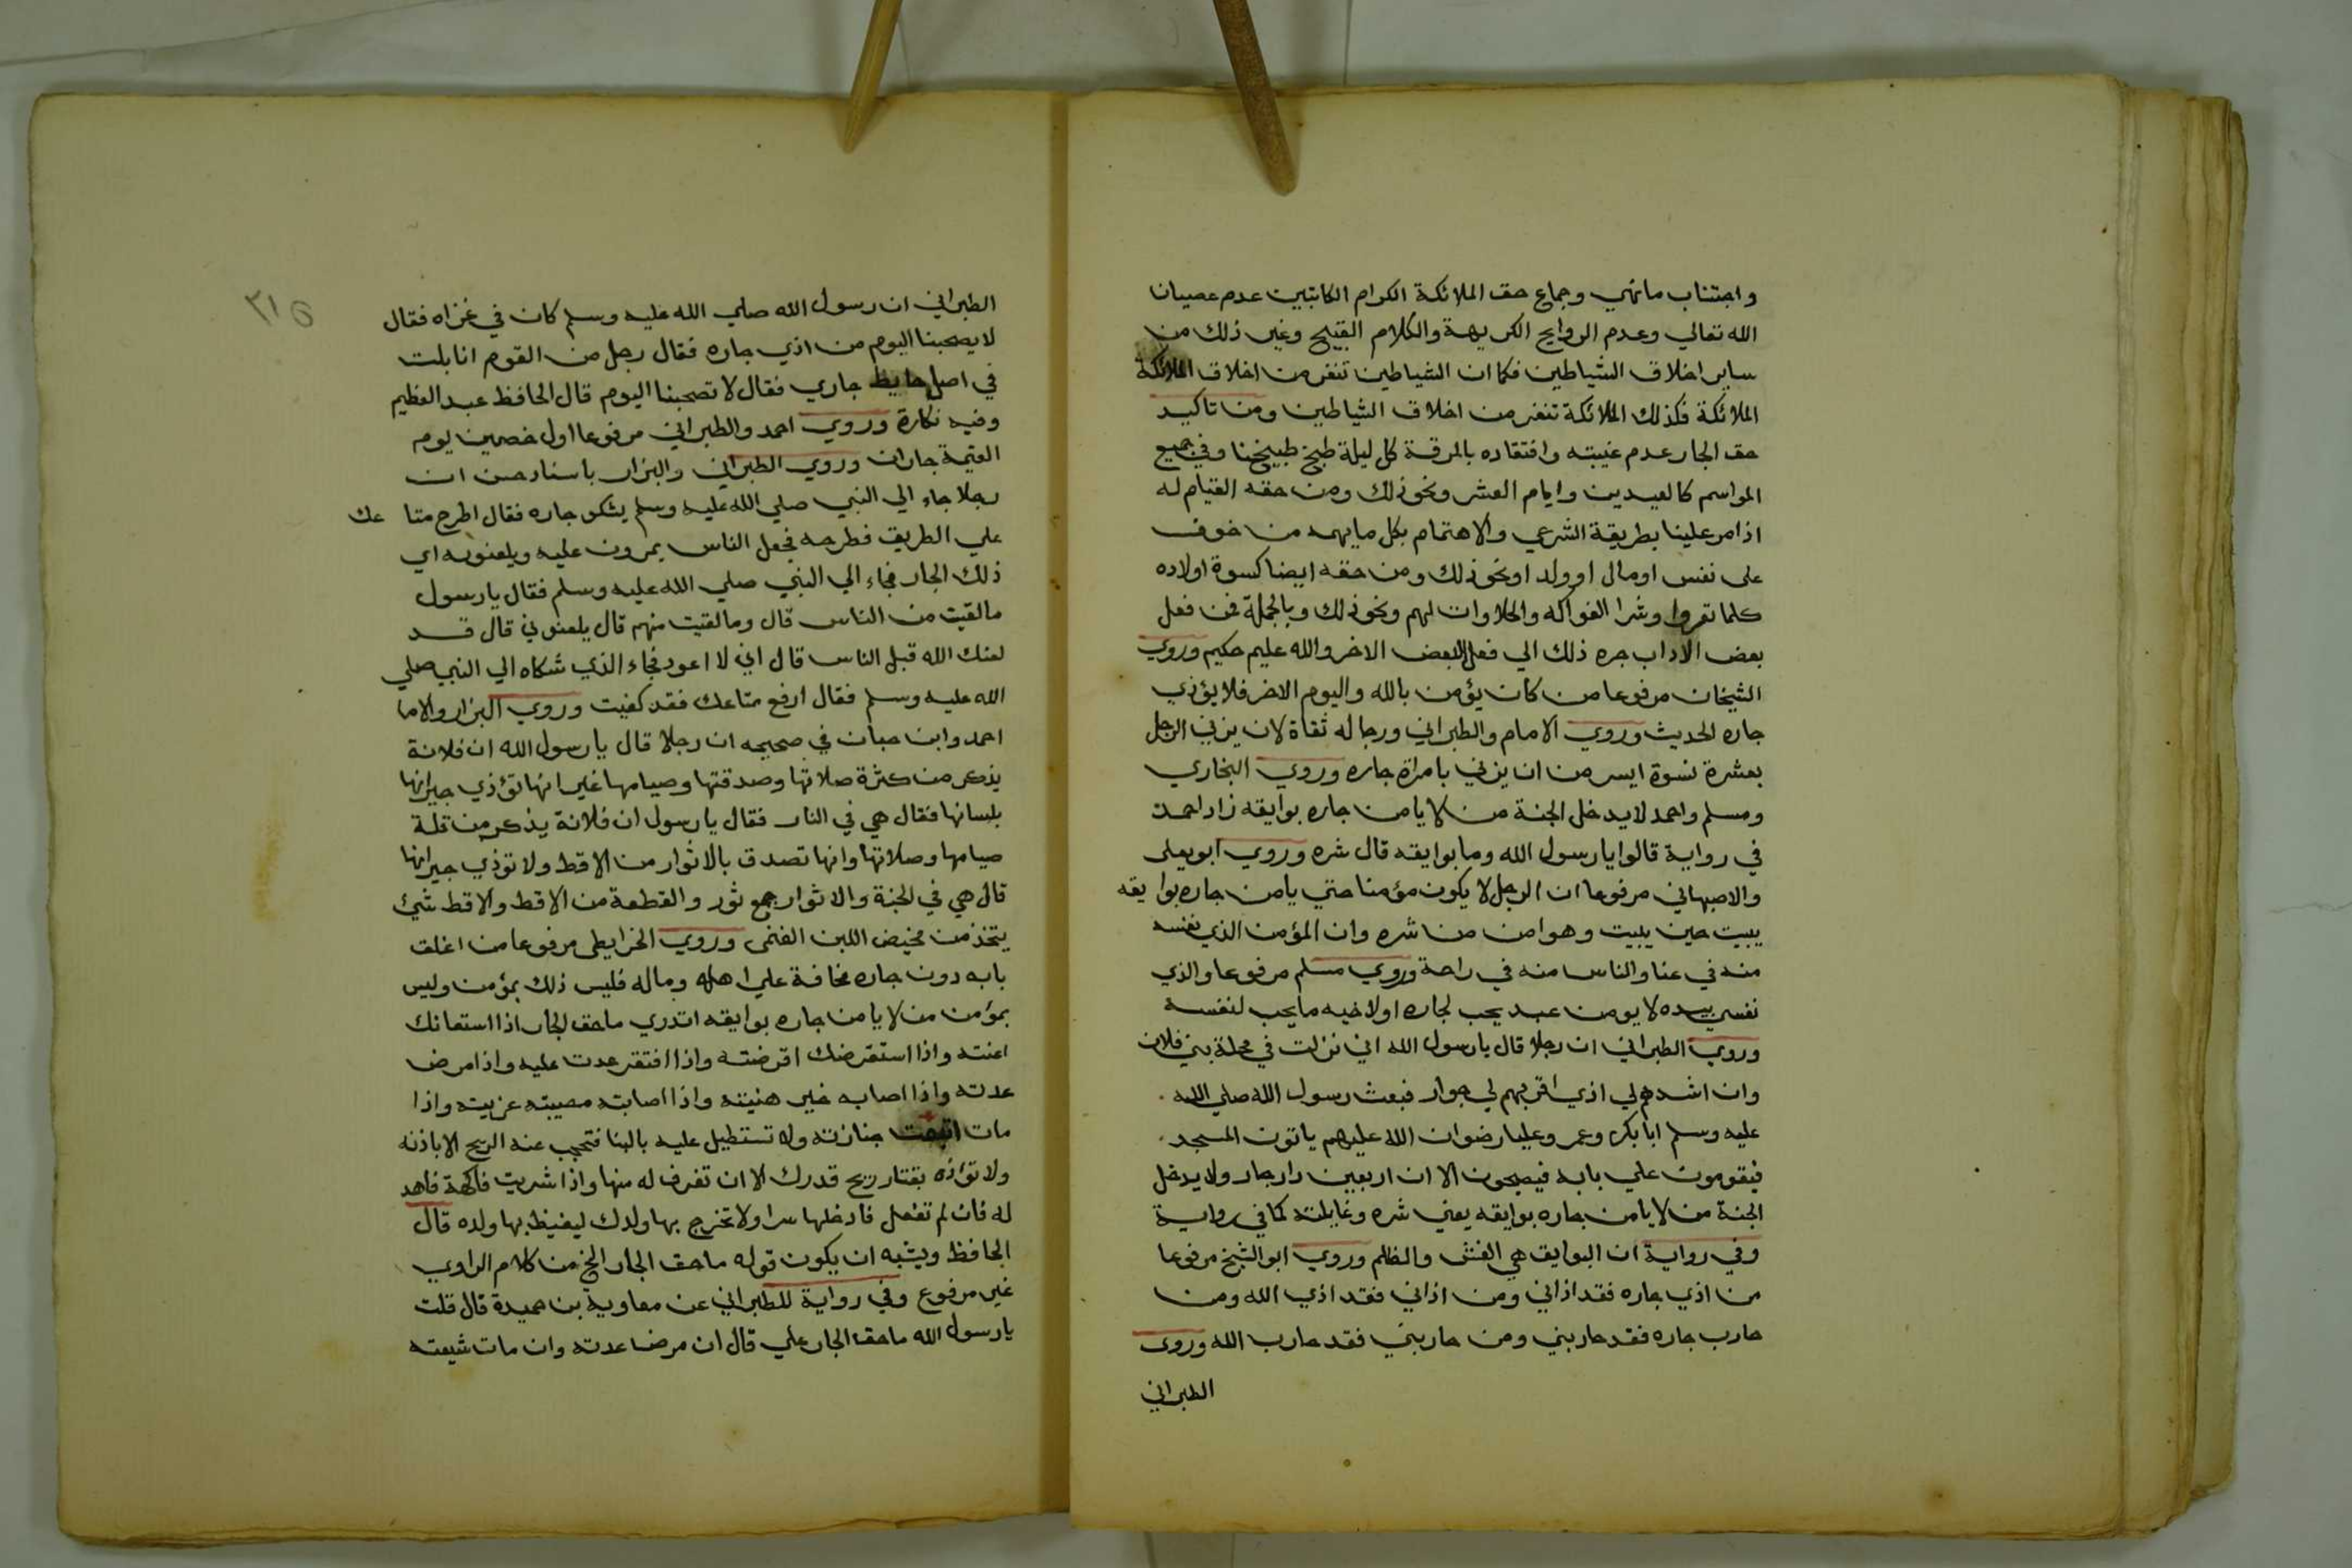 واجتناب مانهي وجماع حق الملائكة الكرام الكاتبين عدم عصيان
الله تعالي وعدم الروايح الكريهة والكلام القبيح وغير ذلك من
ساير اخلاق الشياطين فكما ان الشياطين تنفر من اخلاق الملائكة
الملائكة فكذلك الملائكة تنفر من اخلاق الشياطين ومن تاكيد
حق الجار عدم غيبته وافتقاده بالمرقة كل ليلة طبخ طبيخنا وفي جميع
المواسم كالعيدين وايام العشر ونحو ذلك ومن حقه القيام له
اذا مر علينا بطريقة الشرعي والاهتمام بكل ما يهمه من خوف
على نفس او مال او ولد او نحو ذلك ومن حقه ايضا كسوة اولاده
كلما تعروا وشرا الفواكه والحلاوات لهم ونحو ذلك وبالجملة فمن فعل
بعض الاداب جره ذلك الي فعل البعض الاخر والله عليم حكيم وروي
الشيخان مرفوعا من كان يؤمن بالله واليوم الاخر فلا يؤذي
جاره الحديث وروي الامام والطبراني ورجاله ثقاة لان يزني الرجل
بعشرة نسوة ايسر من ان يزني بامراة جاره وروي البخاري
ومسلم واحمد لا يدخل الجنة من لا يامن جاره بوايقه زاد احمد
في رواية قالوا يا رسول الله وما بوايقه قال شره وروي ابو يعلى
والاصبهاني مرفوعا ان الرجل لا يكون مؤمنا حتي يامن جاره بوايقه
يبيت حين يبيت وهو امن من شره وان المؤمن الذي نفسه
منه في عنا والناس منه في راحة وروي مسلم مرفوعا والذي
نفسي بيده لا يومن عبد يحب لجاره او لاخيه ما يحب لنفسه
وروي الطبراني ان رجلا قال يا رسول الله اني نزلت في محلة بني فلان
وان اشدهم لي اذي اقربهم لي جوار فبعث رسول الله صلي الله
عليه وسلم ابا بكر وعمر وعليا رضوان الله عليهم ياتون المسجد
فيقومون علي بابه فيصيحون الا ان اربعين دار جار ولا يدخل
الجنة من لا يامن جاره بوايقه يعني شره وغايلته كما في رواية
وفي رواية ان البوايق هي الغش والظلم وروي ابو الشيخ مرفوعا
من اذي جاره فقد اذاني ومن اذاني فقد اذي الله ومن
حارب جاره فقد حاربني ومن حاربني فقد حارب الله وروى
الطبراني
٣١٥
الطبراني ان رسول الله صلي الله عليه وسلم كان في غزاه فقال
لا يصحبنا اليوم من اذي جاره فقال رجل من القوم انا بلت
في اصل حايط جاري فقال لا تصحبنا اليوم قال الحافظ عبد العظيم
وفيه نكارة وروي احمد والطبراني مرفوعا اول خصمين يوم
القيمة جاران وروي الطبراني والبزار باسناد حسن ان
رجلا جاء الي النبي صلي الله عليه وسلم يشكو جاره فقال اطرح متاعك
علي الطريق فطرحه فجعل الناس يمرون عليه ويلعنونه اي
ذلك الجار فجاء الي النبي صلي الله عليه وسلم فقال يا رسول
ما لقيت من الناس قال وما لقيت منهم قال يلعنوني قال قد
لعنك الله قبل الناس قال اني لا اعود فجاء الذي شكاه الي النبي صلي
الله عليه وسلم فقال ارفع متاعك فقد كفيت وروي البزار والاما
احمد وابن حبان في صحيحه ان رجلا قال يا رسول الله ان فلانة
يذكر من كثرة صلاتها وصدقتها وصيامها غير انها تؤذي جيرانها
بلسانها فقال هي في النار فقال يا رسول ان فلانة يذكر من قلة
صيامها وصلاتها وانها تصدق بالاثوار من الاقط ولا توذي جيرانها
قال هي في الجنة والاثوار جمع ثور والقطعة من الاقط والاقط شئ
يتخذ من مخيض اللبن الغنمى وروي الخرايطى مرفوعا من اغلق
بابه دون جاره مخافة علي اهله وماله فليس ذلك بمؤمن وليس
بمؤمن من لا يامن جاره بوايقه اتدري ما حق الجار اذا استعانك
اعنته واذا استقرضك اقرضته واذا افتقر عدت عليه واذا مرض
عدته واذا اصابه خير هنيته واذا اصابته مصيبته عزيته واذا
مات اتبعت جنازته ولا تستطيل عليه بالبنا فتحجب عنه الريح الا باذنه
ولا توذه بقتار ريح قدرك الا ان تغرف له منها واذا شريت فاكهة فاهد
له فان لم تفعل فادخلها سرا ولا تخرج بها ولدك ليغيظ بها ولده قال
الحافظ ويشبه ان يكون قوله ما حق الجار الخ من كلام الراوي
غير مرفوع وفي رواية للطبراني عن معاوية بن حميدة قال قلت
يا رسول الله ما حق الجار علي قال ان مرض عدته وان مات شيعته